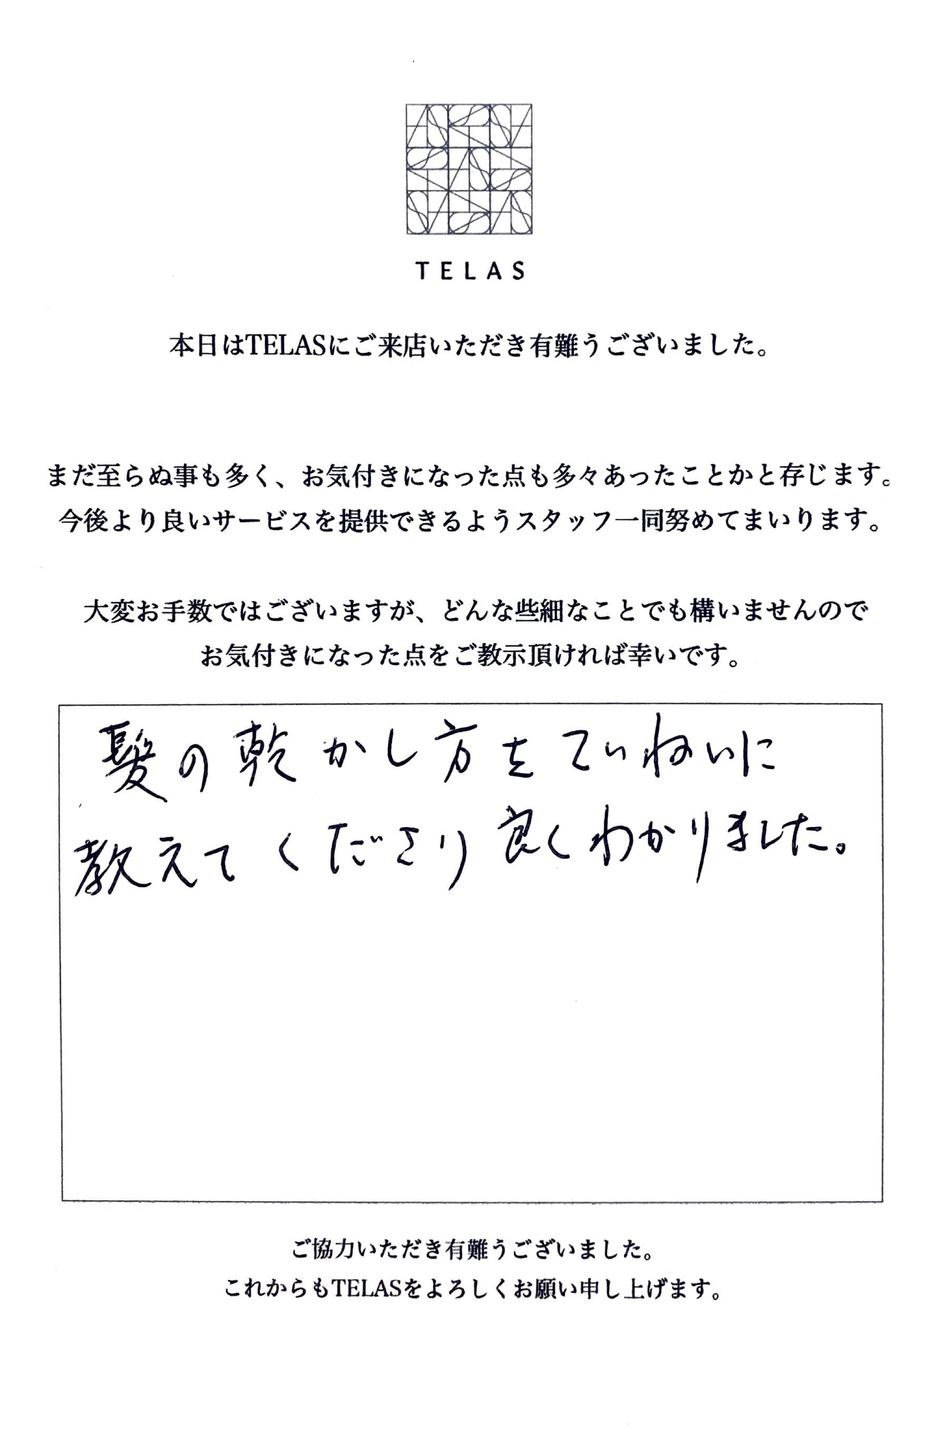 TELAS
本日はTELASにご来店いただき有難うございました。
まだ至らぬ事も多く、お気付きになった点も多々あったことかと存じます。
今後より良いサービスを提供できるようスタッフ一同努めてまいります。
大変お手数ではございますが、どんな些細なことでも構いませんので
お気付きになった点をご教示頂ければ幸いです。
髪の乾かし方をていねいに
教えてくださり良くわかりました。
ご協力いただき有難うございました。
これからもTELASをよろしくお願い申し上げます。